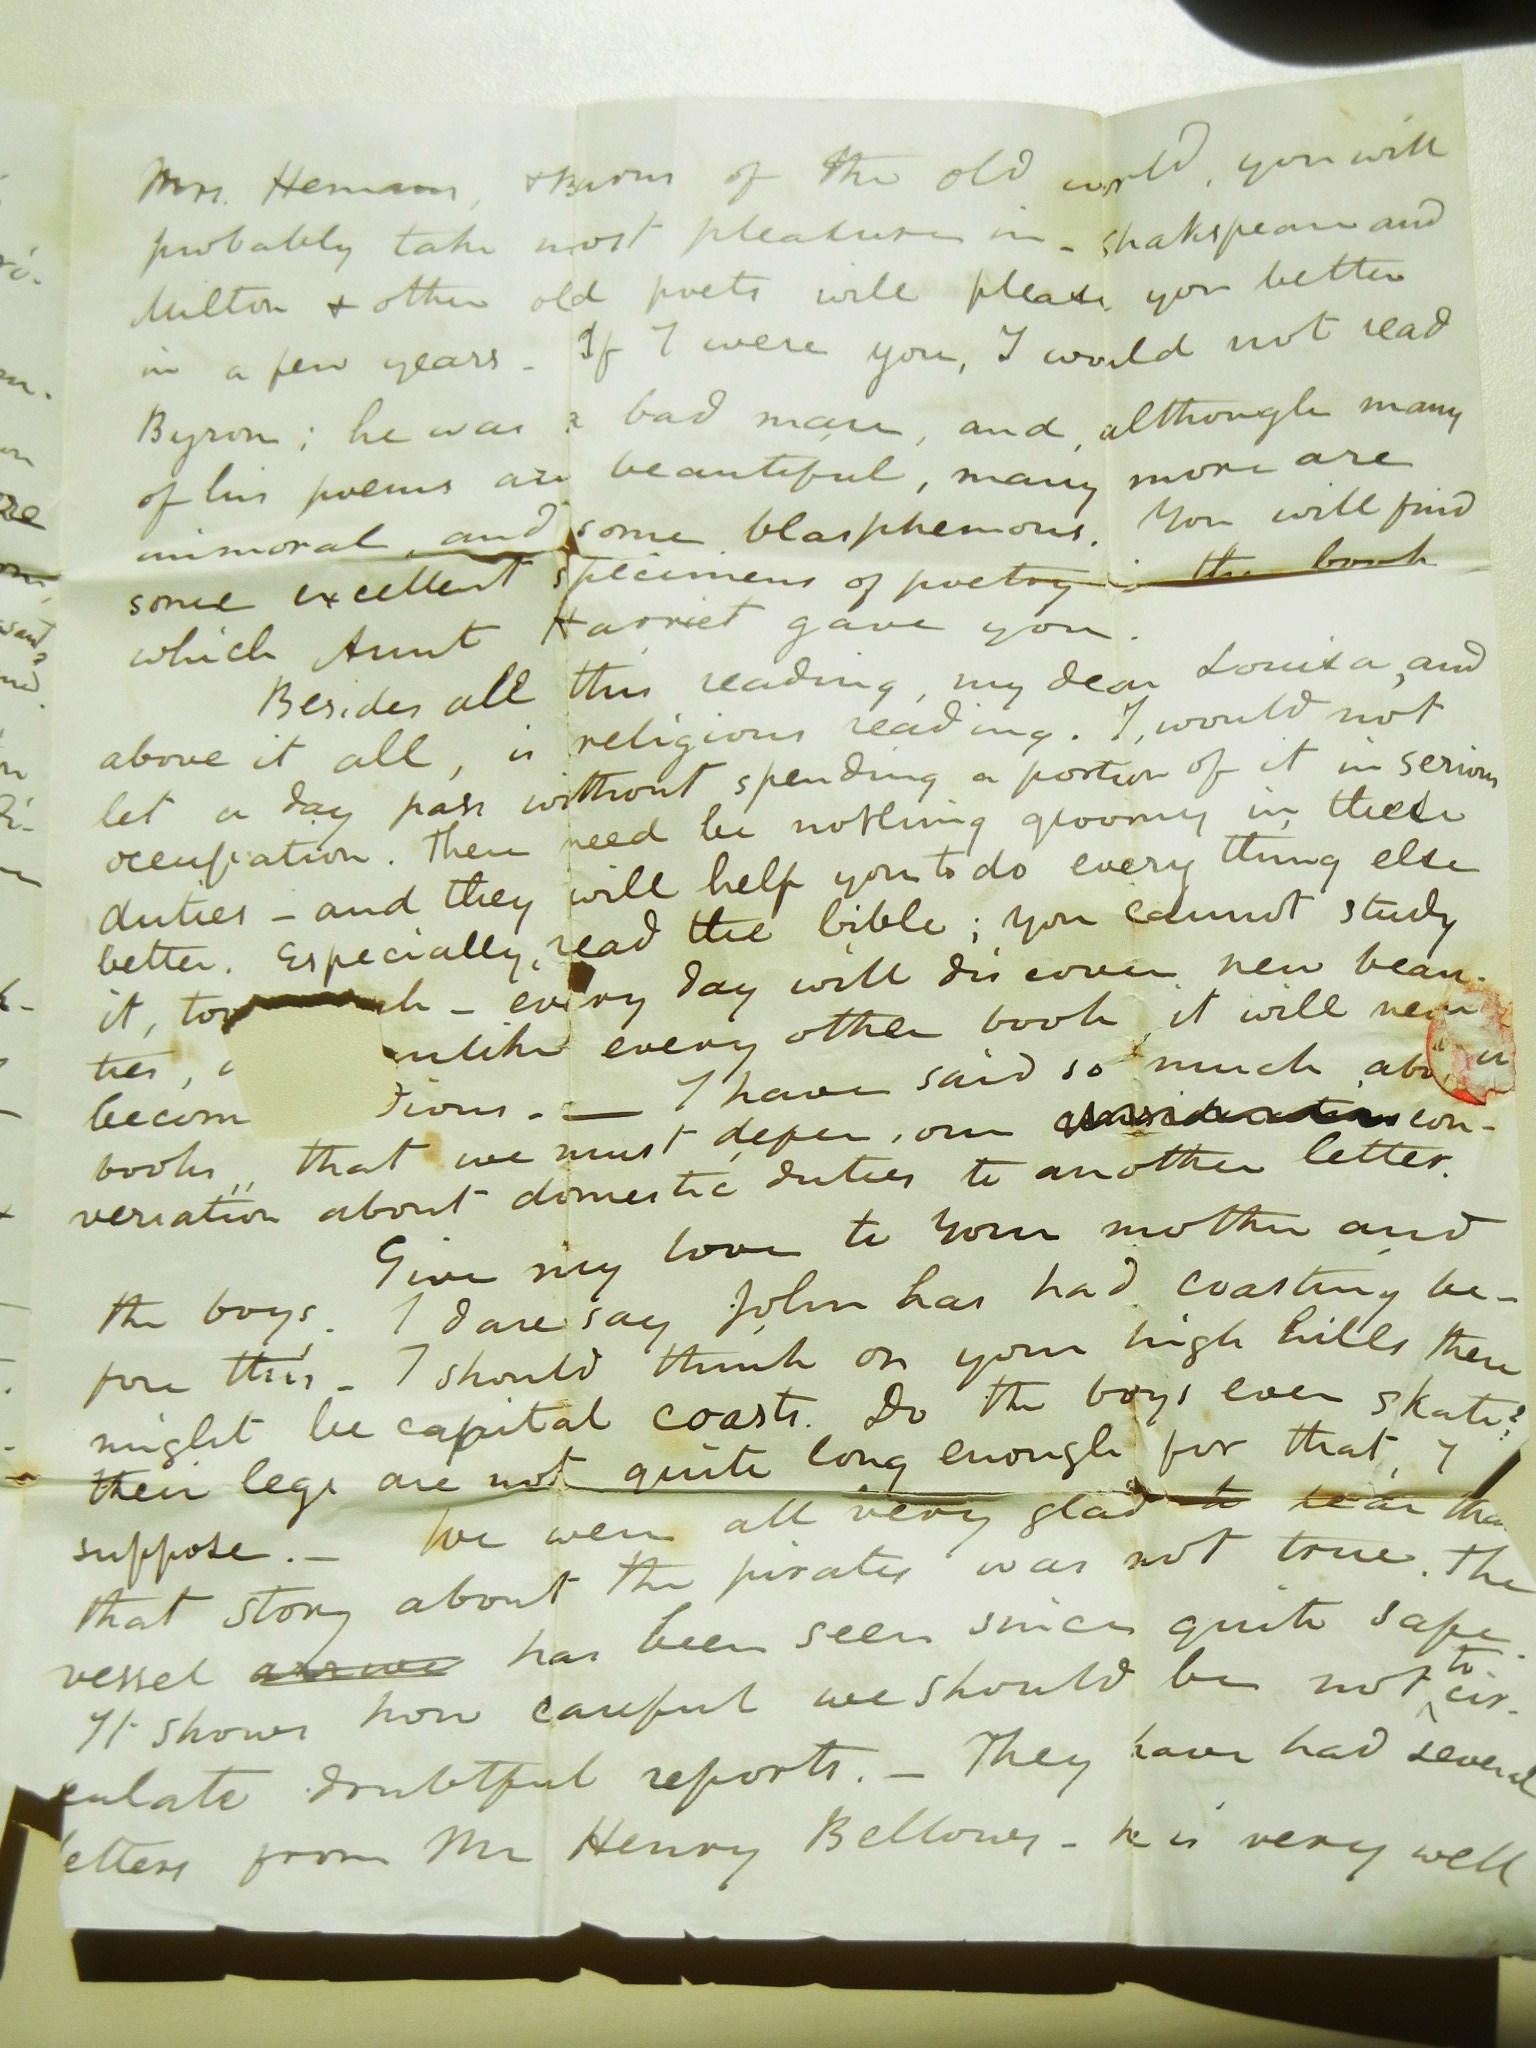 Mrs. Hemans, & Burns of the old world, you will
probably take most pleasure in - Shakspeare and
Milton & other old poets will please you better
in a few years - If I were you, I would not read
Byron; he was a bad man, and, although many
of his poems are beautiful, many more are
immoral, and some blasphemous. You will find
some excellent specimens of poetry in the book
which Aunt Harriet gave you.
Besides all this reading, my dear Louisa, and
above it all, is religious reading. I, would not
let a day pass without spending a portion of it in serious
occupation. There need be nothing gloomy in these
duties - and they will help you to do every thing else
better. Especially, read the bible; you cannot study
it, too ch - every day will discover new beau-
ties, unlike every other book, it will never
becom dious. - I have said so much about
books, that we must defer, our con-
versation about domestic duties to another letter.
Give my love to your mother and
the boys. I dare say John has had coasting be-
fore this - I should think on your high hills there
might be capital coasts. Do the boys ever skate?
their legs are not quite long enough for that, I
suppose. - We were all very glad to hear tha
that story about the pirates was not true. The
vessel arrive has been seen since quite safe.
It shows how careful we should be not to cir-
culate doubtful reports. - They have had several
letters from Mr Henry Bellows - he is very well